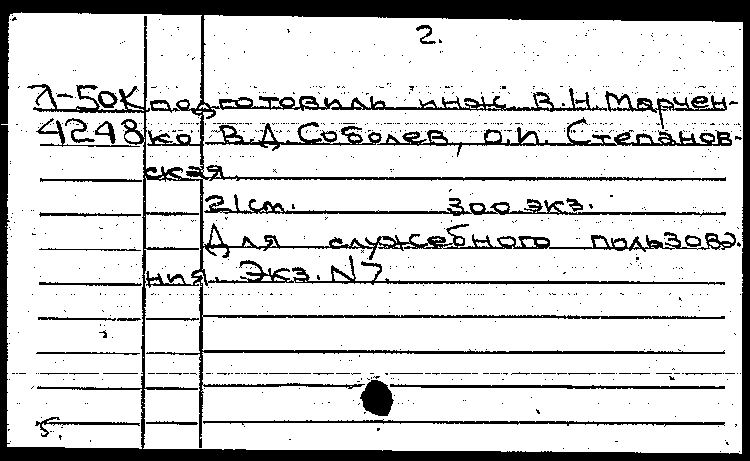 2.
Л-50К подготовили инж. В.Н. Марчен-
4248 ко В.Д. Соболев, О.П. Степанов-
ская.
21 cm. 300 экз.
Для служебного пользова-
ния. Экз. N 7.
5.